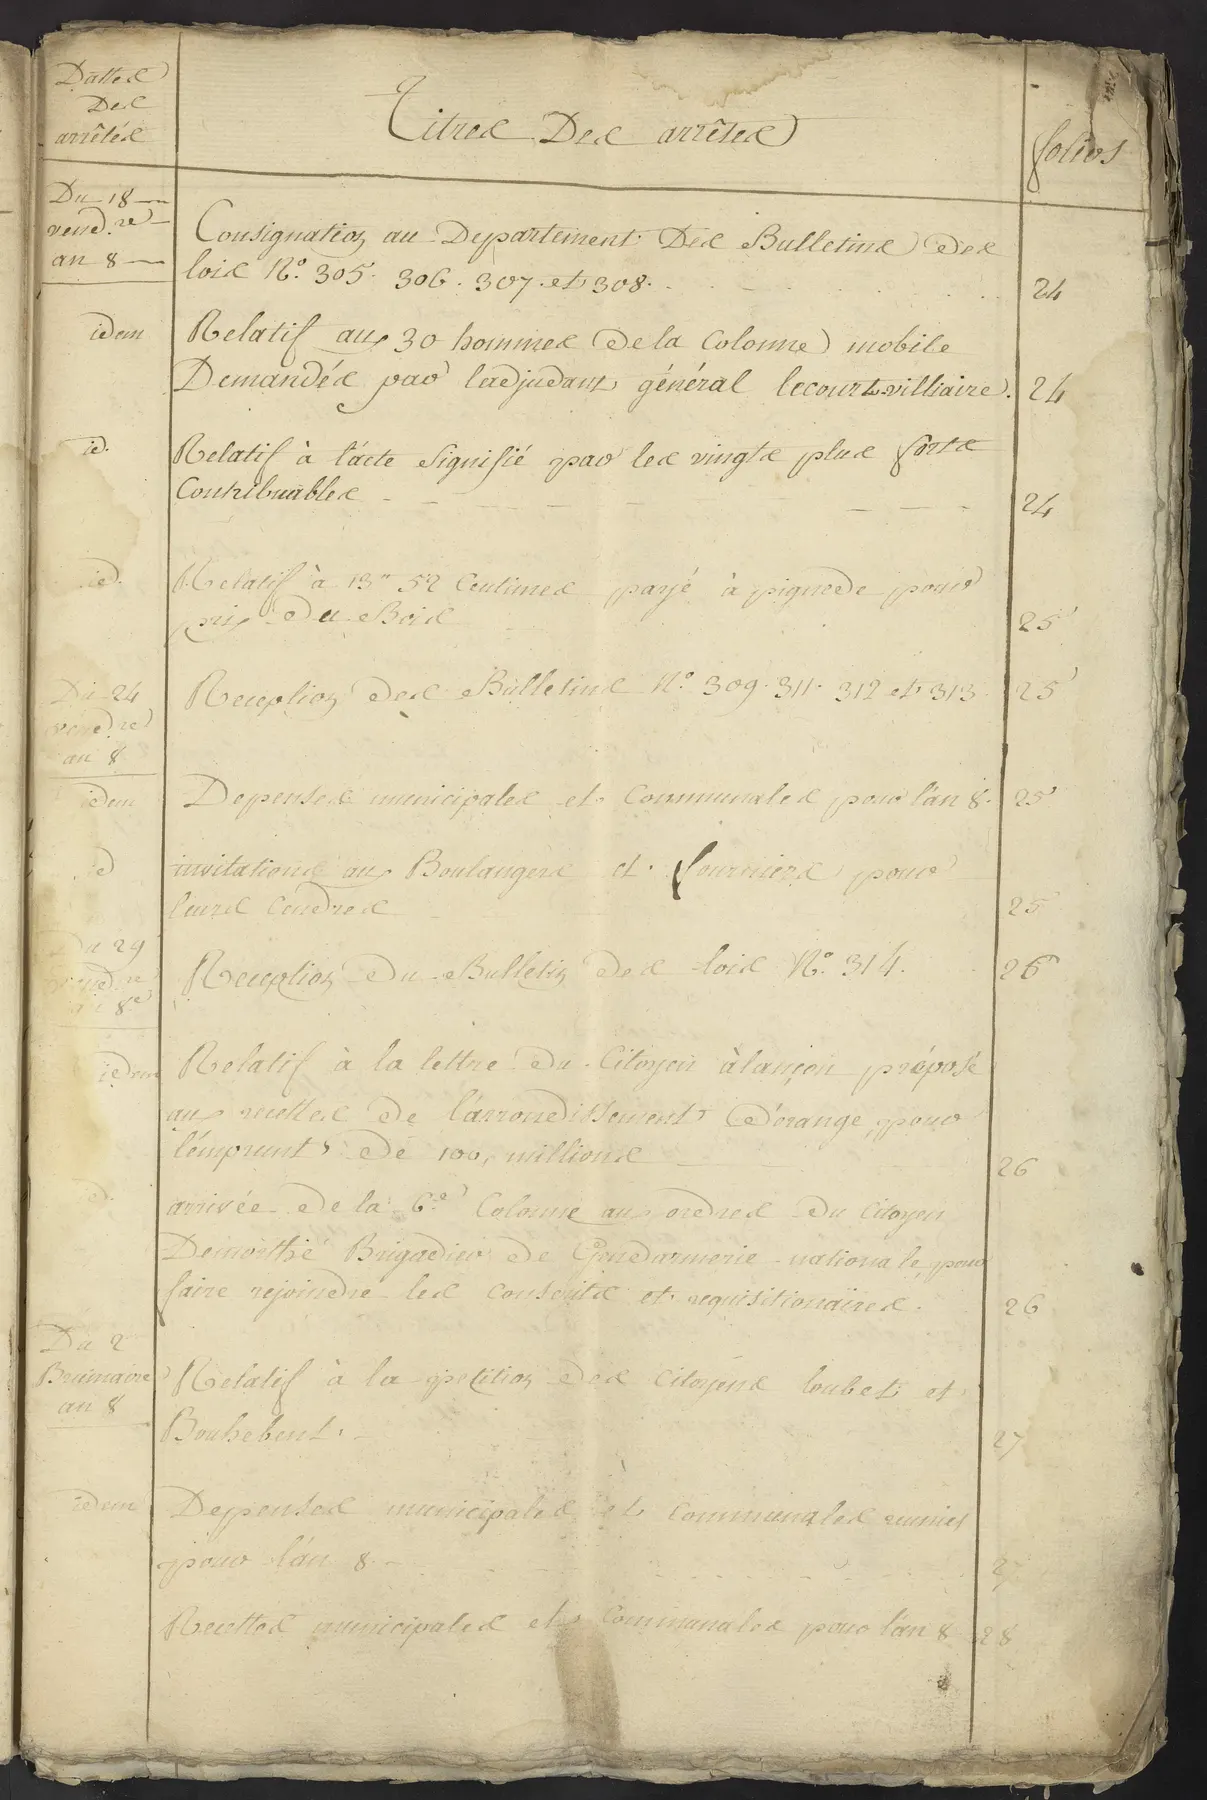 Dattes
Des
arrêtés
Titres Des arrêtés
folios
Du 18
vend.re
an 8
Consignation au Departement Des Bulletins des
lois N.o 305. 306. 307. et 308.
24
idem
Relatif aux 30 hommes de la Colonne mobile
Demandés par l'adjudant général lecourt-villiaire.
24
id.
Relatif à l'acte signifié par les vingts plus forts
Contribuables
24
id.
Relatif à 13 52 Centimes payé à pignede pour
prix du Bois
25
Du 24
vend.re
an 8
Reception des Bulletins N.o 309. 311. 312 et 313
25
idem
Depenses municipales et Communales pour l'an 8.
25
id
invitations aux Boulangers et fourniers pour
leurs Cendres
25
Du 29
vend.re
an 8e
Reception du Bulletin des lois N.o 314.
26
idem
Relatif à la lettre du Citoyen àlançon préposé
aux recettes de l'arrondissement d'orange, pour
l'emprunt de 100, millions
26
id.
arrivée de la 6.e Colonne aux ordres du Citoyen
Demorthé Brigadier de Gendarmerie nationale, pour
faire rejoindre les conscrits et requisitionaires.
26
Du 2
Brumaire
an 8
Relatif à la petition des Citoyens loubet et
Bouhebent.
27
idem
Depenses municipales et communales reunies
pour l'an 8.
27
Recettes municipales et Communales pour l'an 8
28